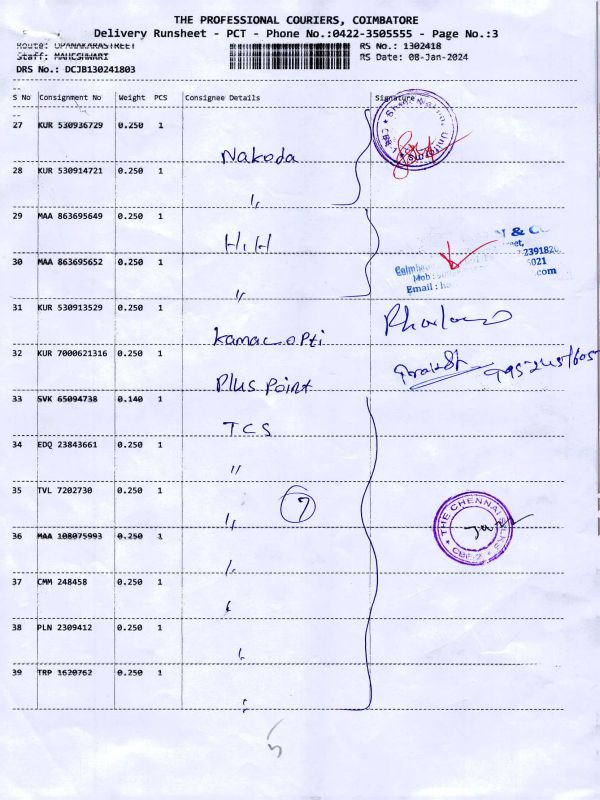 THE PROFESSIONAL COURIERS, COIMBATORE
Delivery Runsheet - PCT - Phone No.:0422-3505555 - Page No.:3
Route: OPANAKARASTREET
RS No.: 1302418
Staff: MAHESHWARI
RS Date: 08-Jan-2024
DRS No.: DCJB130241803
S No Consignment No Weight PCS Consignee Details Signature
27 KUR 530936729 0.250 1 Nakoda
28 KUR 530914721 0.250 1 "
29 MAA 863695649 0.250 1 H.H
30 MAA 863695652 0.250 1 "
& CO
Email :
.com
31 KUR 530913529 0.250 1 Kamac opti
32 KUR 7000621316 0.250 1 Plus Point
33 SVK 65094738 0.140 1 TCS
34 EDQ 23843661 0.250 1 "
35 TVL 7202730 0.250 1 "
7
36 MAA 108075993 0.250 1 "
THE CHENNAI SILKS
CBE.2
37 CMM 248458 0.250 1 "
38 PLN 2309412 0.250 1 "
39 TRP 1620762 0.250 1 "